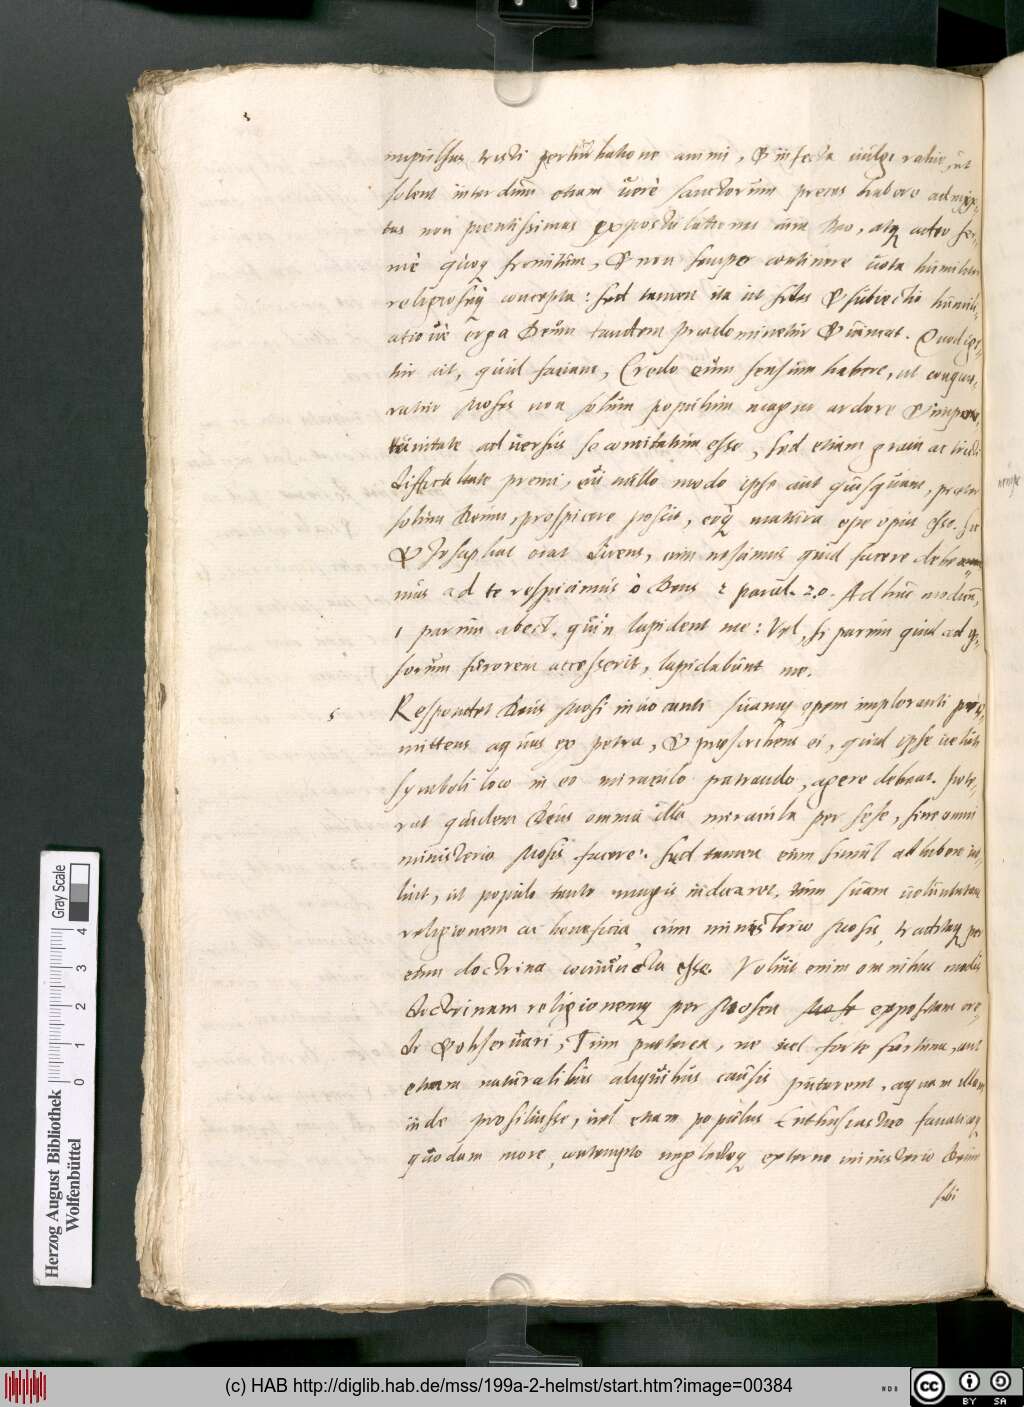 impulsus tristi perturbatione animi, & infecta eiulgi ratio, ut
solent interdum etiam verè sanctorum preces habere admix-
tas non pientissimas expostulationes cum Deo, atq adeo fer-
mè quoq fremitum, & non semper continere vota humiliter
religioseq concepta: sed tamen ita ut fides & subiectio humili-
atio ue erga Deum tandem praedominetur & vincat. Quod igi-
tur ait, quid faciam, Credo eum sensum habere, ut conque-
ratur Moses non solum populum magno ardore & impor-
tunitate aduersus se comitatum esse, sed etiam graui ac
difficultate premi, cui nullo modo ipse aut quisquam, praeter
solum Deum, prospicere possit, eoq matura ope opus esse. Sic
& Josaphat orat dicens, cum nesciamus quid facere debea-
mus ad te respicimus ô Deus 2 paral. 20. Ad huc modicum,
1 parum abest, quin lapident me: Vel, si parum quid ad ip-
sorum furorem accesserit, lapidabunt me.
5 Respondet Deus Mosi inuocanti suamq opem imploranti pro-
mittens aquas ex petra, & praescribens ei, quid ipse uelut
symboli loco in eo miraculo patrando, agere debeat. Pote-
rat quidem Deus omnia illa miracula per sese, sine omni
ministerio Mosis facere: sed tamen eum simul adhibere uo-
luit, ut populo tanto magis indicaret, tum suam uoluntatem
religionem ac beneficia, cum ministerio Mosis, traditaq per
eum doctrina coniuncta esse. Voluit enim omnibus modis
doctrinam religionemq per Mosen expositam cre-
di & obseruari, Tum praeterea, ne uel forte fortuna, aut
etiam naturalibus aliquibus causis putarent, aquam illam
inde prosiliisse, uel etiam populus Enthusiastico fanaticoq
quodam more, contempto neglectoq externo ministerio Deum
sibi
nempe
Herzog August Bibliothek
Wolfenbüttel
0 1 2 3 4
Gray Scale
(c) HAB http://diglib.hab.de/mss/199a-2-helmst/start.htm?image=00384
cc BY SA